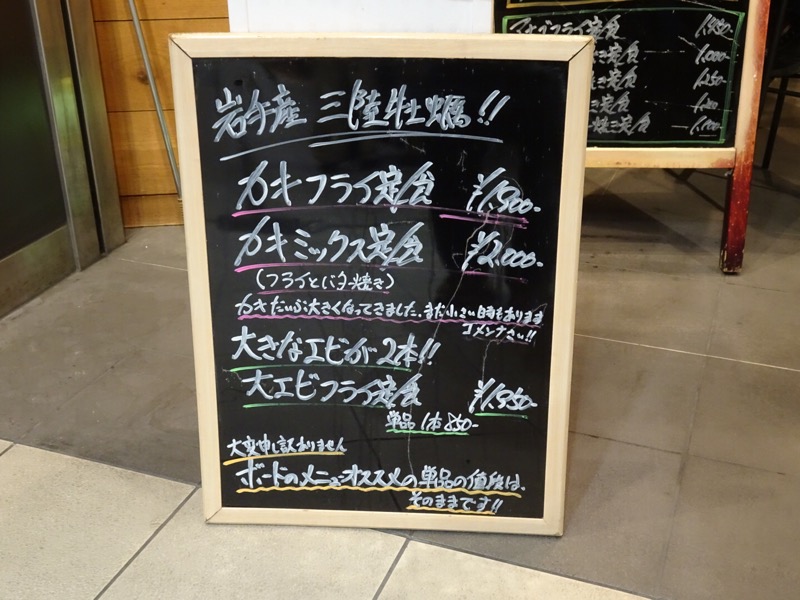 岩手産 三陸牡蠣!!
カキフライ定食 ¥1,900-
カキミックス定食 ¥2,000-
(フライとバター焼き)
カキだいぶ大きくなってきました。まだ小さい時もあります
ゴメンナさい!!
大きなエビが2本!!
大エビフライ定食 ¥1,950-
単品 1本 850-
大変申し訳ありません
ボードのメニューオススメの単品の値段は、
そのままです!!
フライ定食 1,950-
定食 1,000-
定食 1,250-
定食
定食 1,100-